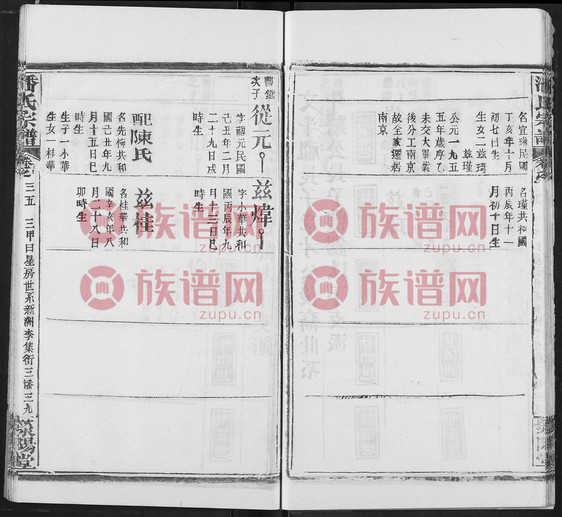 名宜琛民國
丁亥年十月
初七日生
生女二玆琦
玆瑾
公元一九五
五年歲序乙
未交大畢業
後分工南京
故全家遷居
南京
名瑾共和國
丙辰年十一
月初十日生
曹鑑
次子
從元
字福元民國
己丑年二月
二十九日戌
時生
配陳氏
名先梅共和
國己丑年九
月十五日巳
時生
生子一小華
生女一桂華
玆煒
字小華共和
國丙辰年九
月十三日巳
時生
玆桂
名桂華共和
國辛亥年八
月二十八日
卯時生
潘氏宗譜
三五
三甲曰星房世系新洲李集衍三潘三九
滎陽堂
族谱网
zupu.cn
族谱网
zupu.cn
族谱网
zupu.cn
族谱网
zupu.cn